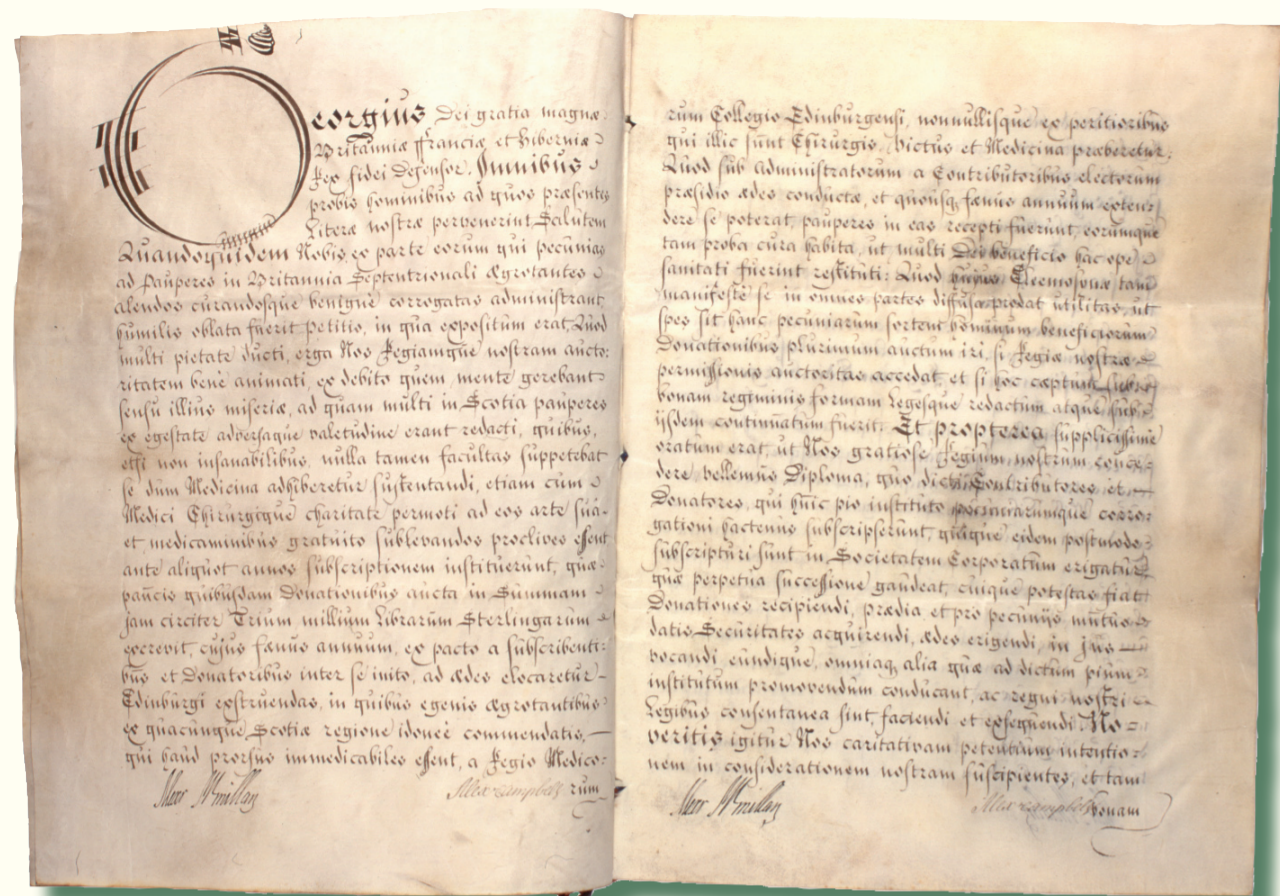 Georgius Dei gratia magnæ
Britanniæ Franciæ et Hiberniæ
Rex fidei Defensor. Omnibus
probis hominibus ad quos præsentes
Literæ nostræ pervenerint, Salutem
Quandoquidem Nobis, ex parte eorum qui pecunias
ad Pauperes in Britannia Septentrionali Ægrotantes
alendos curandosque benigne corrogatas administrant
humilis oblata fuerit petitio, in qua expositum erat, Quod
multi pietate ducti, erga Nos Regiamque nostram aucto:
ritatem benè animati, ex debito quem mente gerebant
sensu illius miseriæ, ad quam multi in Scotia pauperes
ex egestate adversaque valetudine erant redacti, quibus,
etsi non insanabilibus, nulla tamen facultas suppetebat
se dum Medicina adhiberetur sustentandi, etiam cum
Medici Chirurgique charitate permoti ad eos arte suâ
et medicaminibus gratuito sublevandos proclives essent
ante aliquot annos subscriptionem instituerunt, quæ
paucis quibusdam Donationibus aucta in Summam
jam circiter Trium millium Librarum Sterlingarum
excrevit, cujus fænus annuum, ex pacto a subscribenti:
bus et Donatoribus inter se inito, ad ædes elocaretur
Edinburgi exstruendas, in quibus egenis ægrotantibus
ex quacunque Scotiæ regione idoneè commendatis,
qui haud prorsus immedicabiles essent, a Regio Medico:
Alexr McMillan Alex Campbell rum
rum Collegio Edinburgensi, nonnullisque ex peritioribus
qui illic sunt Chirurgis, Victus et Medicina præberetur;
Quod sub administratorum a Contributoribus electorum
præsidio ædes conductæ, et quousq, fænus annuum exten:
dere se poterat, pauperes in eas recepti fuerint, eorumque
tam proba cura habita, ut multi Dei beneficio hac ope
sanitati fuerint restituti: Quod hujus Eleemosynæ tam
manifestè se in omnes partes diffusa prodat utilitas, ut
spes sit hanc pecuniarum sortem hominum beneficiorum
Donationibus plurimum auctum iri, si Regiæ nostræ
permissionis auctoritas accedat, et si hoc cæptum sub
bonam regiminis formam Legesque redactum atque sub
ijsdem continuatum fuerit. Et propterea supplicissimè
oratum erat, ut Nos gratiose Regium nostrum conce:
dere vellemus Diploma, quo dicti Contributores et
Donatores, qui huic pio instituto pecuniarumque corro:
gationi hactenus subscripserunt, quique eidem postmodo
subscripturi sunt in Societatem Corporatum erigatur
quæ perpetua successione gaudeat, cuique potestas fiat
Donationes recipiendi, prædia et pro pecunijs mutuo
datis Securitates acquirendi, ædes erigendi, in jus
vocandi eundique, omniaq, alia quæ ad dictum pium
institutum promovendum conducant, ac regni nostri
Legibus consentanea sint, faciendi et exsequendi No:
veritis igitur Nos caritativam petentium intentio:
nem in considerationem nostram suscipientes, et tam
Alexr McMillan Alex Campbell bonam